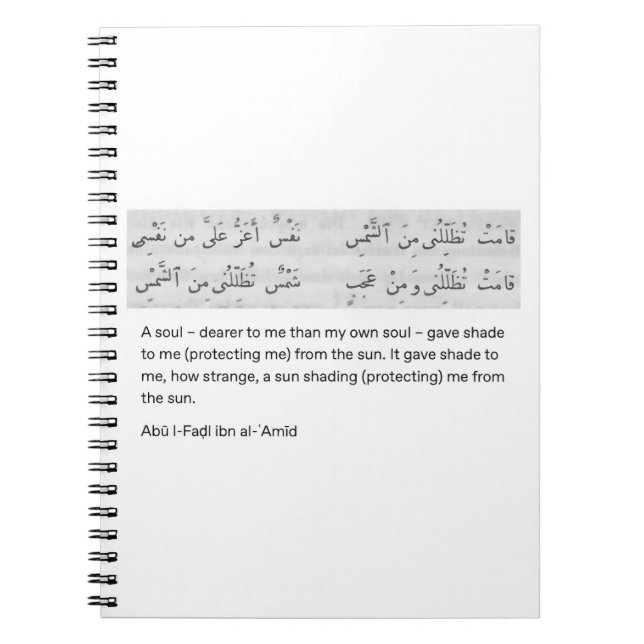 قامَتْ تُظَلِّلُنِى مِنَ ٱلشَّمْسِ نَفْسٌ أَعَزُّ عَلَىَّ مِن نَفْسِى
قامَتْ تُظَلِّلُنِى وَمِنْ عَجَبٍ شَمْسٌ تُظَلِّلُنِى مِنَ ٱلشَّمْسِ
A soul – dearer to me than my own soul – gave shade
to me (protecting me) from the sun. It gave shade to
me, how strange, a sun shading (protecting) me from
the sun.
Abū l-Faḍl ibn al-ʿAmīd